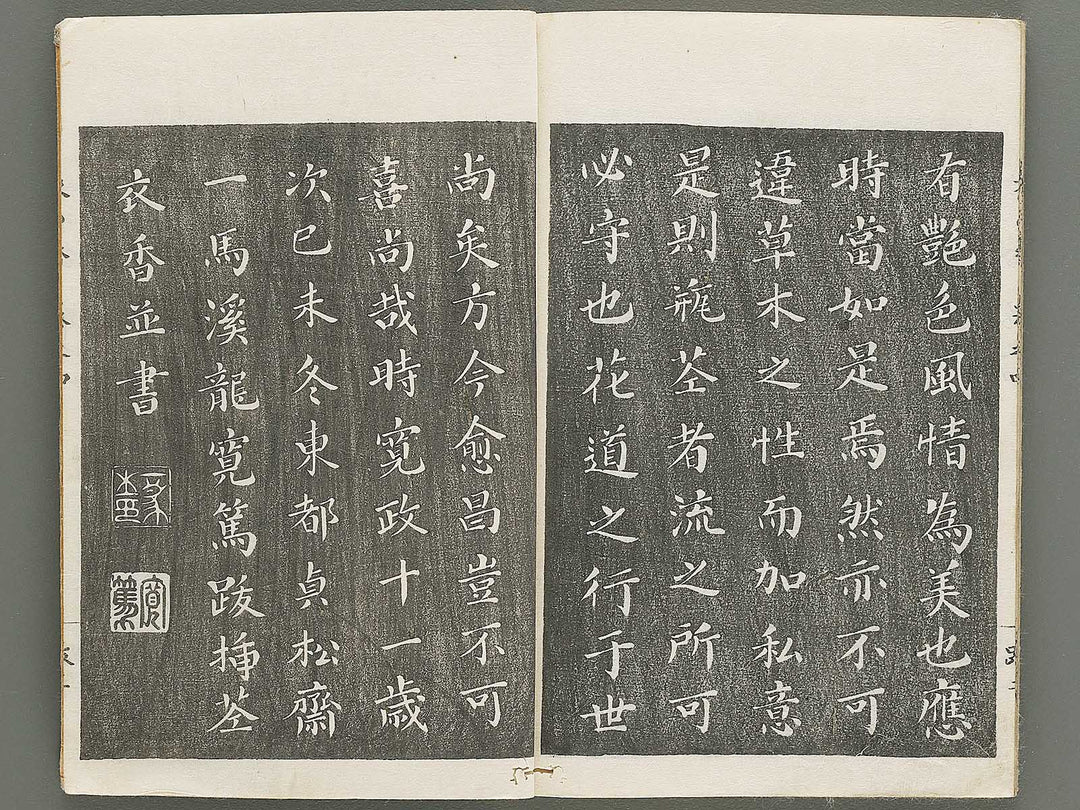 有艶色風情為美也應
時當如是焉然亦不可
違草木之性而加私意
是則瓶荃者流之所可
必守也花道之行于世
尚矣方今愈昌豈不可
喜尚哉時寛政十一歳
次巳未冬東都貞松齋
一馬溪龍寛篤跋挿荃
衣香並書
寛篤